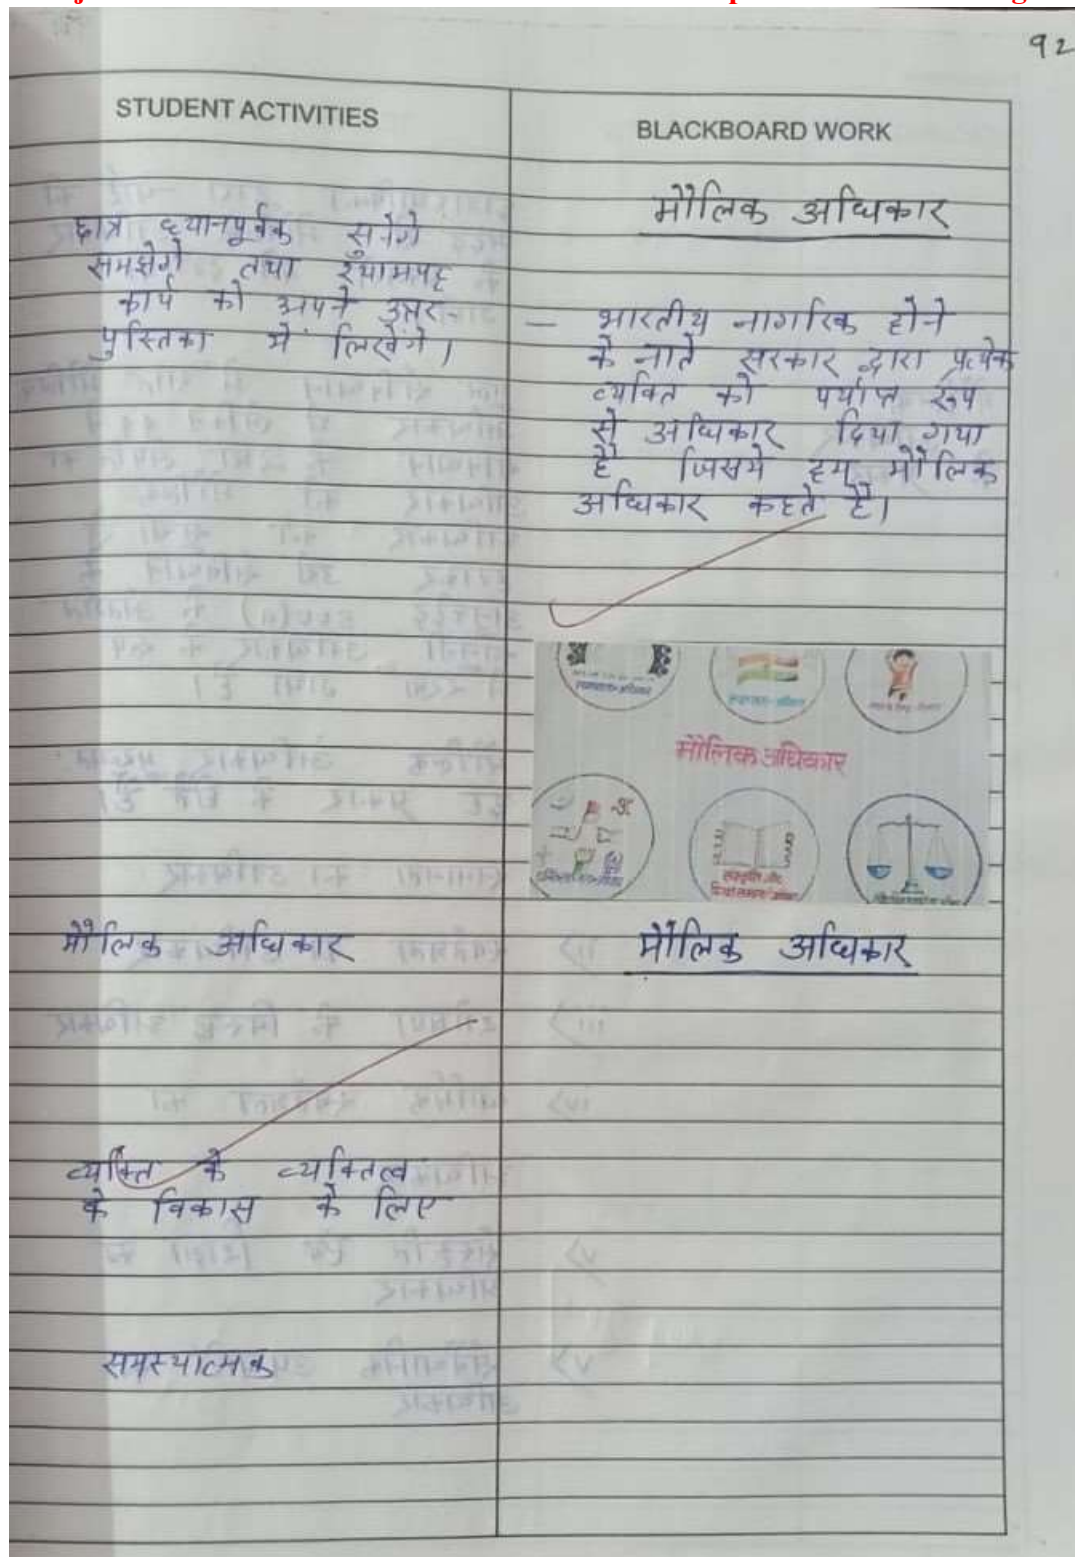 92
STUDENT ACTIVITIES
छात्र ध्यानपूर्वक सुनेगे
समझेगे तथा श्यामपट्ट
कार्य को अपने उत्तर-
पुस्तिका में लिखेंगे।
मौलिक अधिकार
व्यक्ति के व्यक्तित्व
के विकास के लिए
समस्यात्मक
BLACKBOARD WORK
मौलिक अधिकार
— भारतीय नागरिक होने
के नाते सरकार द्वारा प्रत्येक
व्यक्ति को पर्याप्त रूप
से अधिकार दिया गया
है जिसमे हम मौलिक
अधिकार कहते है।
मौलिक अधिकार
संस्कृति और
मौलिक अधिकार